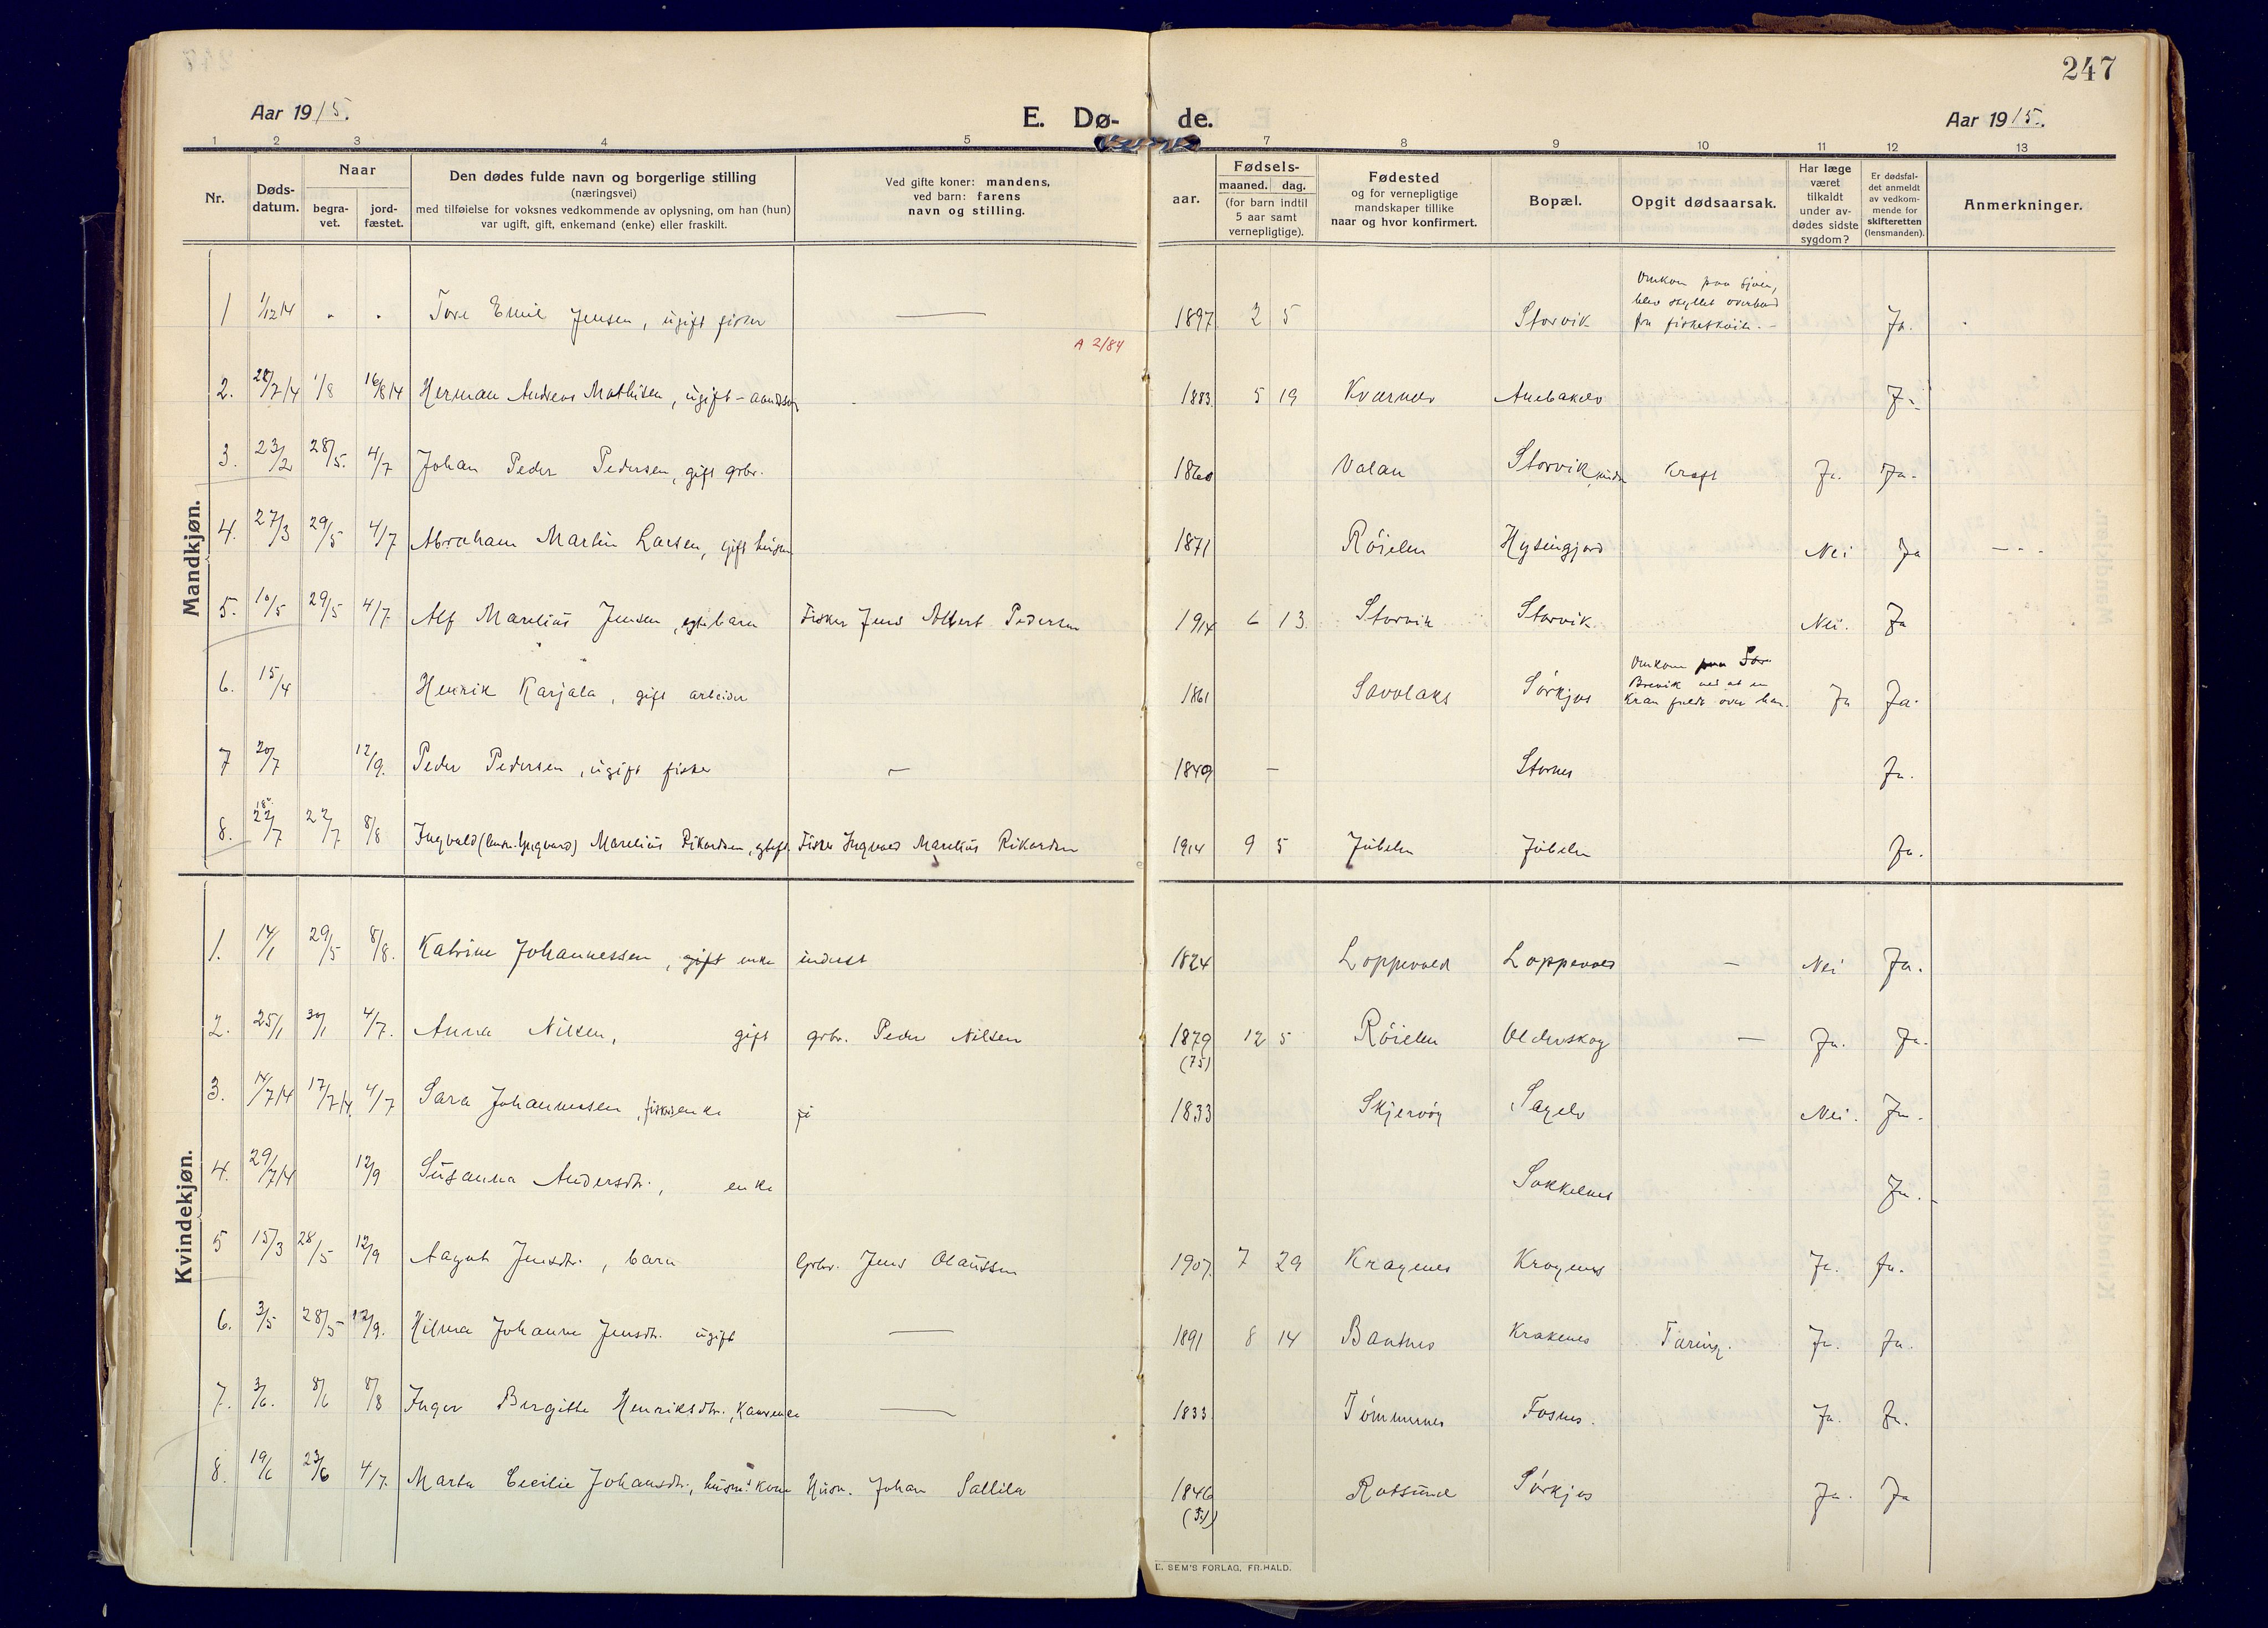 247
Aar 1915.
E. Dø- de.
Aar 1915.
1 2 3 4 5 7 8 9 10 11 12 13
Nr.
Døds-
datum.
Naar
begra-
vet.
jord-
fæstet.
Den dødes fulde navn og borgerlige stilling
(næringsvei)
med tilføielse for voksnes vedkommende av oplysning, om han (hun)
var ugift, gift, enkemand (enke) eller fraskilt.
Ved gifte koner: mandens,
ved barn: farens
navn og stilling.
Fødsels-
aar.
maaned. dag.
(for barn indtil
5 aar samt
vernepligtige).
Fødested
og for vernepligtige
mandskaper tillike
naar og hvor konfirmert.
Bopæl.
Opgit dødsaarsak.
Har læge
været
tilkaldt
under av-
dødes sidste
sygdom?
Er dødsfal-
det anmeldt
av vedkom-
mende for
skifteretten
(lensmanden).
Anmerkninger.
Mandkjøn.
1 1/12 14 Tore Emil Jensen, ugift fisker — 1897 2 5 Storvik Omkom paa sjøen,
blev skyllet overbord
fra fiskeskøite. — Ja.
A 2/84
2. 28/7 14 1/8 16/8 14 Herman Andreas Mathisen, ugift - 1883 5 19 Kvænelv Ja
3. 23/2 28/5. 4/7 Johan Peder Pedersen, gift grbr. 1860 Valan Storvik Kræft Ja. Ja.
4. 27/3 29/5 4/7 Abraham Martin Larsen, gift husm 1871 Röielen Hysingjord Nei Ja
5. 10/5 29/5 4/7 Alf Marelius Jensen, egte barn Fisker Jens Albert Pedersen 1914 6 13. Storvik Storvik Nei. Ja
6. 15/4 Henrik Karjala, gift arbeider 1861 Savolaks Sörkjos Omkom
Brevik ved at en
Kran faldt over ham. Ja Ja.
7 20/7 12/9. Peder Pedersen, ugift fisker — 1849 — Stornes Ja.
8. 22/7 22/7 8/8 Ingvald Marelius Rikardsen, Fisker Ingvald Marelius Rikardsen 1914 9 5 Jübelen Jübelen Ja.
Kvindekjøn.
1. 14/1 29/5 8/8. Katrine Johannessen, gift enke inderst 1824 Loppevold Loppevold — Nei Ja.
2. 25/1 30/1 4/7. Anna Nilsen, gift grbr. Peder Nilsen 1879 12 5 Röielen Olderskog — Ja. Ja.
(75)
3. 14/7 14 17/7 14. 4/7 Sara Johannesen, fiskerenke 1833 Skjervöy Sagelv Nei. Ja.
4. 29/7 14 12/9 Susanna Andersdtr., enke Sokkelnes Ja.
5 15/3 28/5 12/9 Aagot Jensdtr., barn Grbr. Jens Olaussen 1907. 7 29 Kragenes Kragenes Ja. Ja.
6. 3/5 28/5 12/9. Hilma Johanne Jensdtr. ugift — 1891 8 14 Bankenes Krakenes Tæring. Ja. Ja.
7. 3/6. 8/6 8/8 Inger Birgitte Henriksdtr., — 1833 Tömmernes Fosnes. Ja. Ja.
8. 19/6 23/6 4/7. Marta Cecilie Johansdtr., husm. Kone Husm. Johan Sallila 1846 Rotsund Sörkjos Ja. Ja
E. SEM'S FORLAG, FR.HALD.